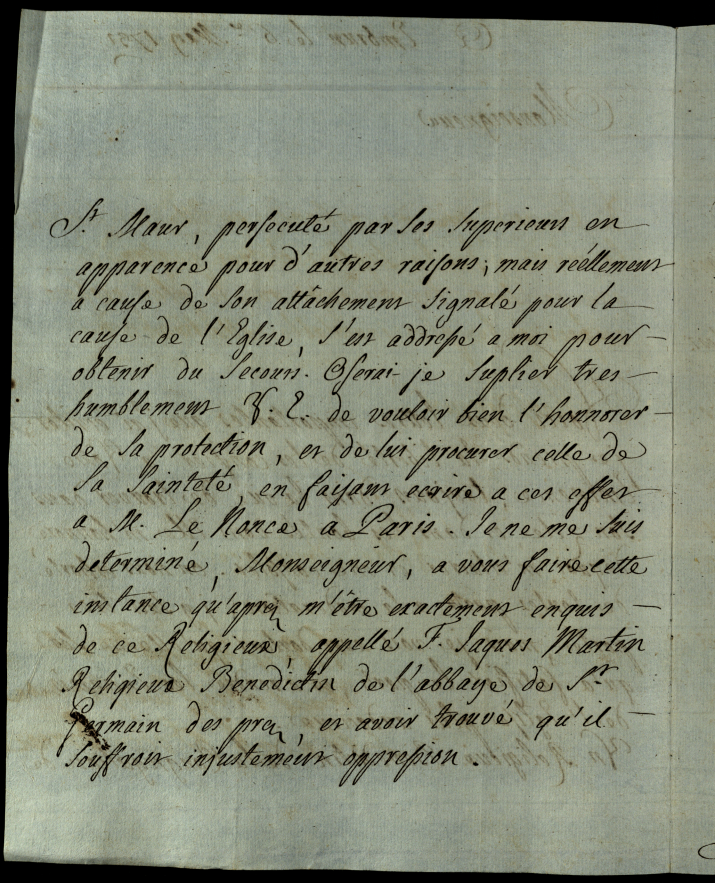 St. Maur, persecuté par les superieurs en
apparence pour d'autres raisons; mais réellement
a cause de son attâchement signalé pour la
cause de l'Eglise, s'est addressé a moi pour
obtenir du secours. Oserai-je suplier tres
humblement V. E. de vouloir bien l'honnorer
de sa protection, et de lui procurer celle de
sa sainteté, en faisant ecrire a cet effet
a M. Le Nonce a Paris. Je ne me suis
determiné, Monseigneur, a vous faire cette
instance qu'apres m'être exactement enquis
de ce Religieux, appellé F. Jaques Martin
Religieux Benedictin de l'abbaye de St.
Germain des prez, et avoir trouvé qu'il
souffroit injustement oppression.